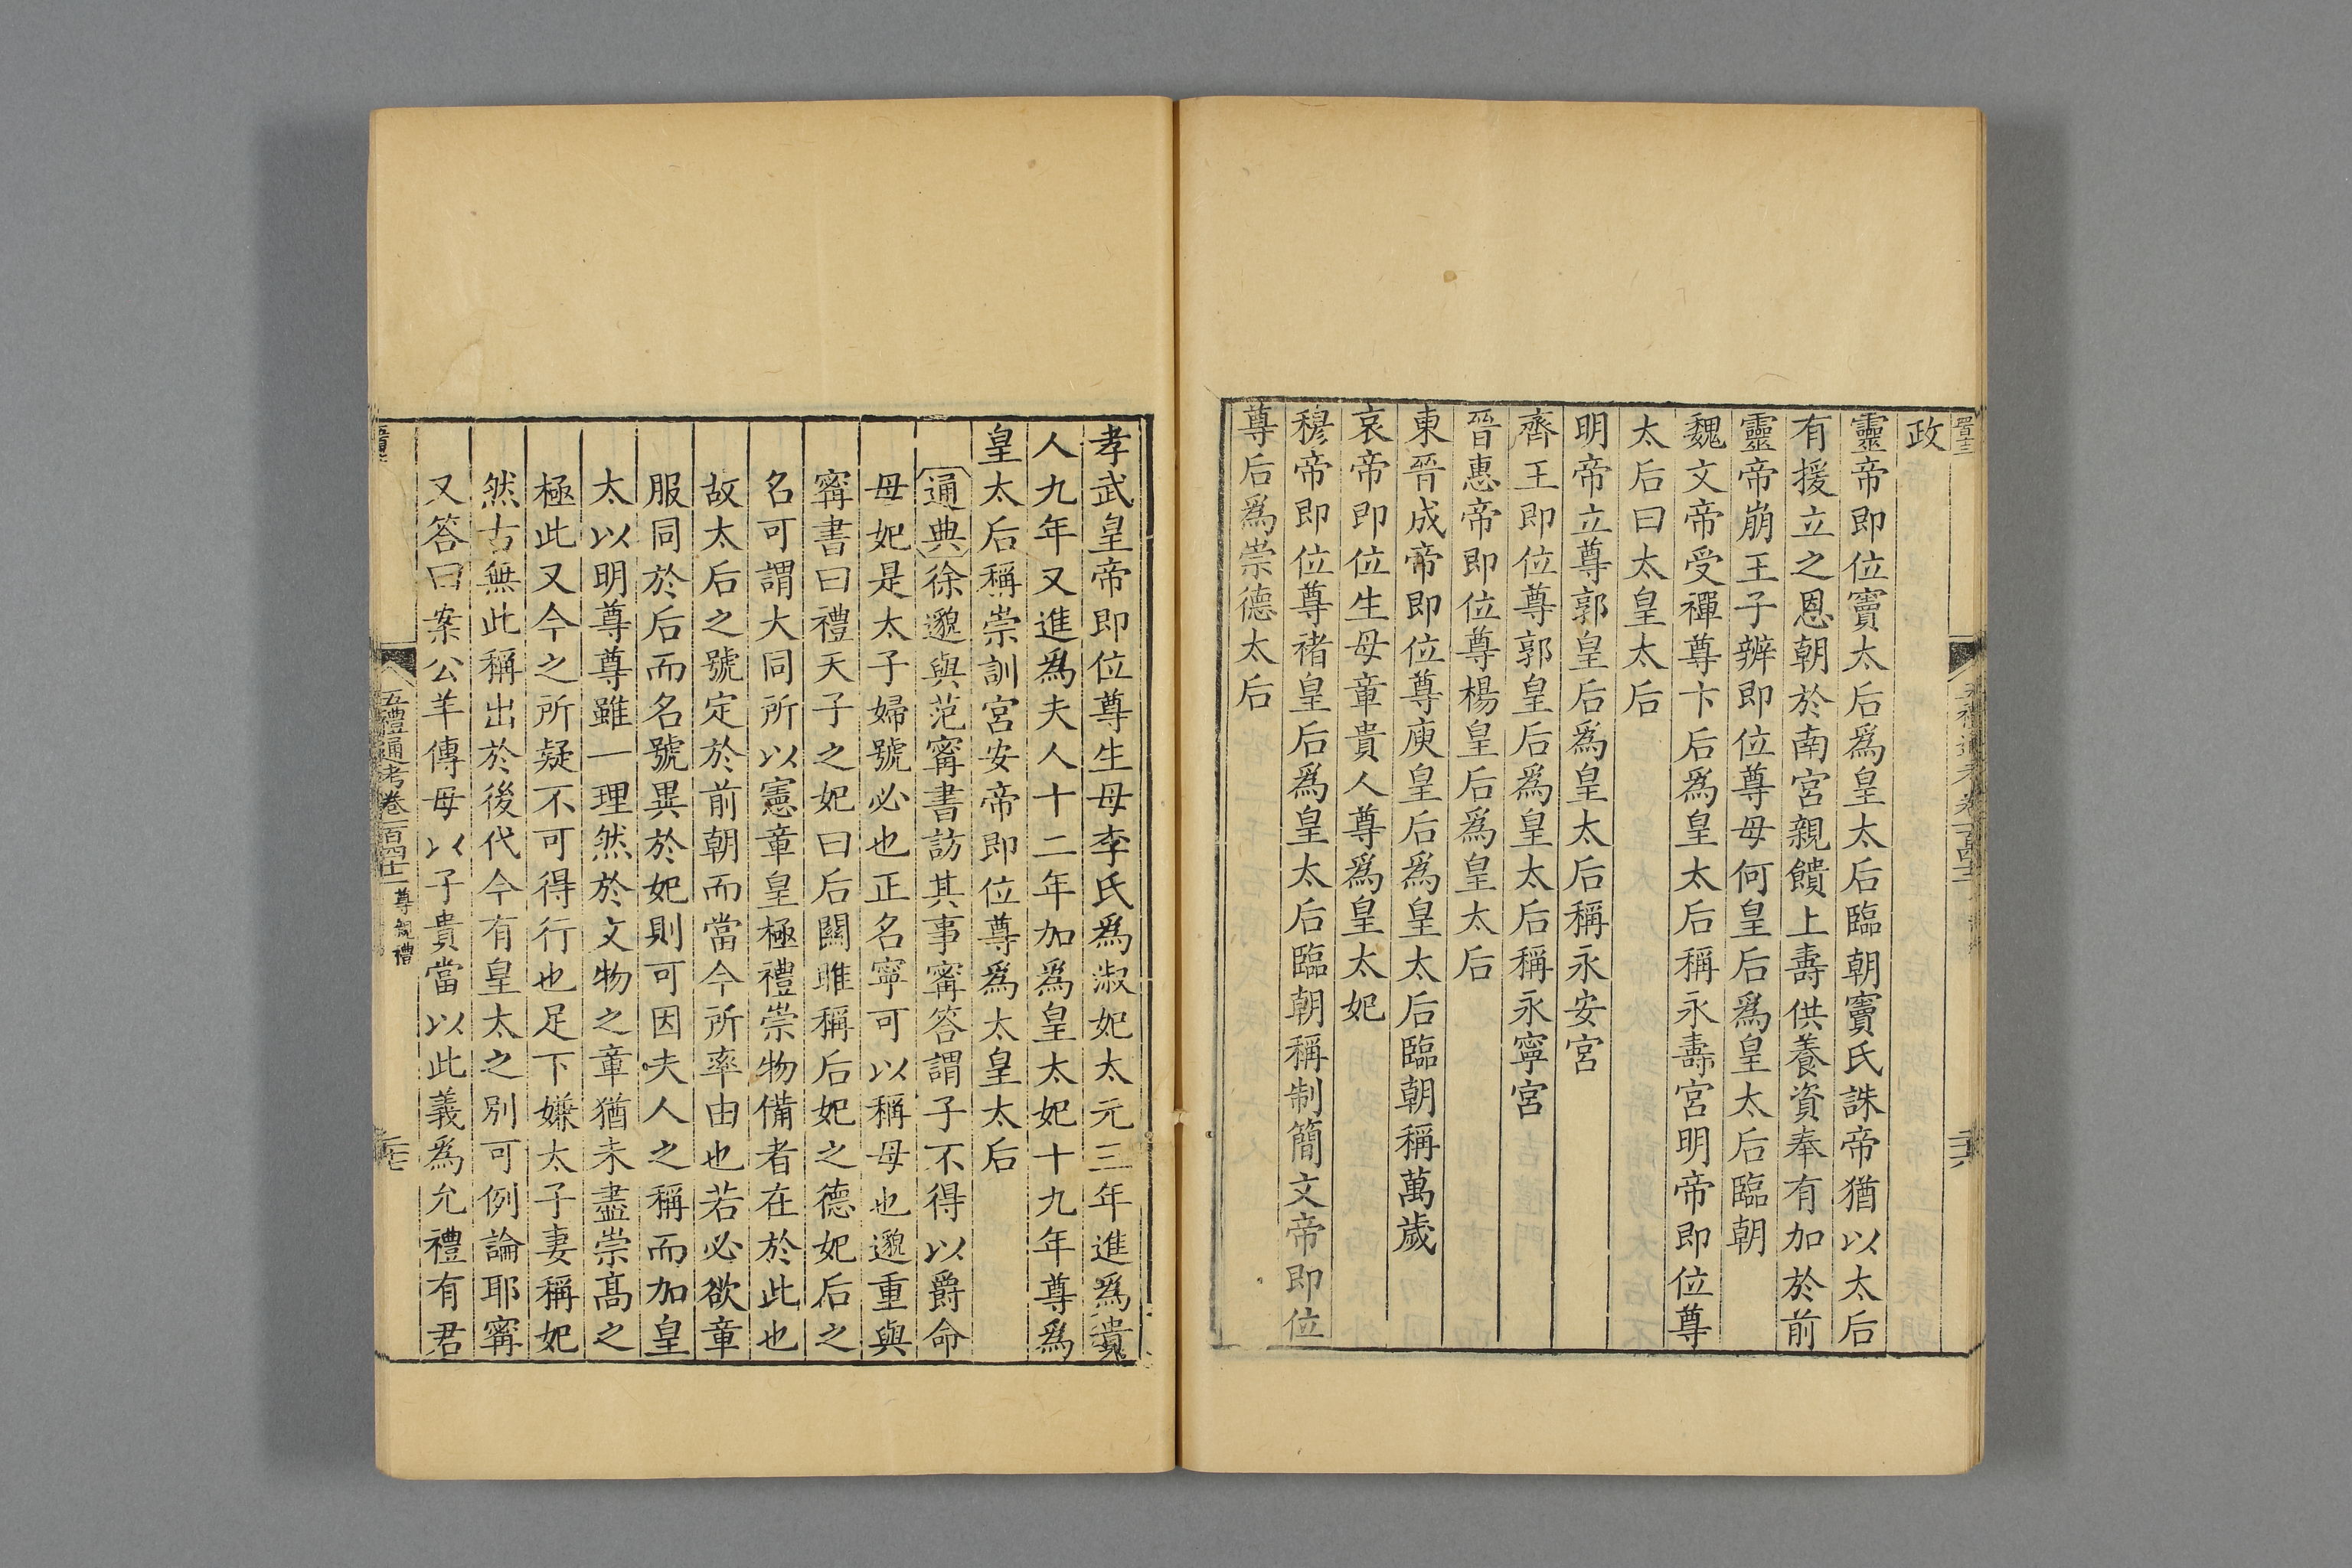 政
靈帝即位竇太后爲皇太后臨朝竇氏誅帝猶以太后
有援立之恩朝於南宮親饋上壽供養資奉有加於前
靈帝崩王子辨即位尊母何皇后爲皇太后臨朝
魏文帝受禪尊卞后爲皇太后稱永壽宮明帝即位尊
太后曰太皇太后
明帝立尊郭皇后爲皇太后稱永安宮
齊王即位尊郭皇后爲皇太后稱永寧宮
晉惠帝即位尊楊皇后爲皇太后
東晉成帝即位尊庾皇后爲皇太后臨朝稱萬歲
哀帝即位生母章貴人尊爲皇太妃
穆帝即位尊褚皇后爲皇太后臨朝稱制簡文帝即位
尊后爲崇德太后
孝武皇帝即位尊生母李氏爲淑妃太元三年進爲貴
人九年又進爲夫人十二年加爲皇太妃十九年尊爲
皇太后稱崇訓宮安帝即位尊爲太皇太后
通典徐邈與范甯書訪其事甯答謂子不得以爵命
母妃是太子婦號必也正名寧可以稱母也邈重與
甯書曰禮天子之妃曰后關雎稱后妃之德妃后之
名可謂大同所以憲章皇極禮崇物備者在於此也
故太后之號定於前朝而當今所率由也若必欲章
服同於后而名號異於妃則可因夫人之稱而加皇
太以明尊尊雖一理然於文物之章猶未盡崇高之
極此又今之所疑不可得行也足下嫌太子妻稱妃
然古無此稱出於後代今有皇太之別可例論耶甯
又答曰案公羊傳母以子貴當以此義爲允禮有君
五禮通考卷一百四十二 尊親禮
二十七